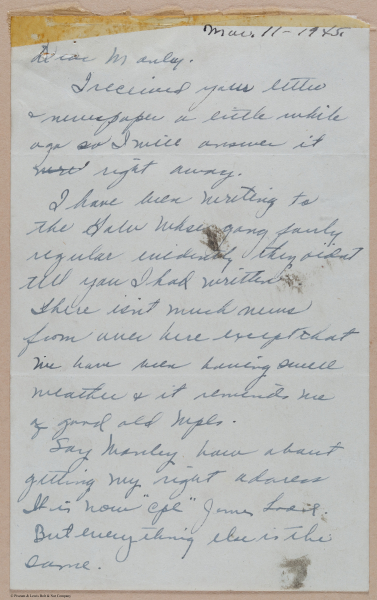 Mar. 11 - 1945.
Dear Manley.
I received your letter
& newspaper a little while
ago so I will answer it
right away.
I have been writing to
the Whse gang fairly
regular evidently they didnt
tell you I had written.
There isn't much news
from over here except that
we have been having swell
weather & it reminds me
of good old Mpls.
Say Manley how about
getting my right address
It is now "Cpl" James
But everything else is the
same.